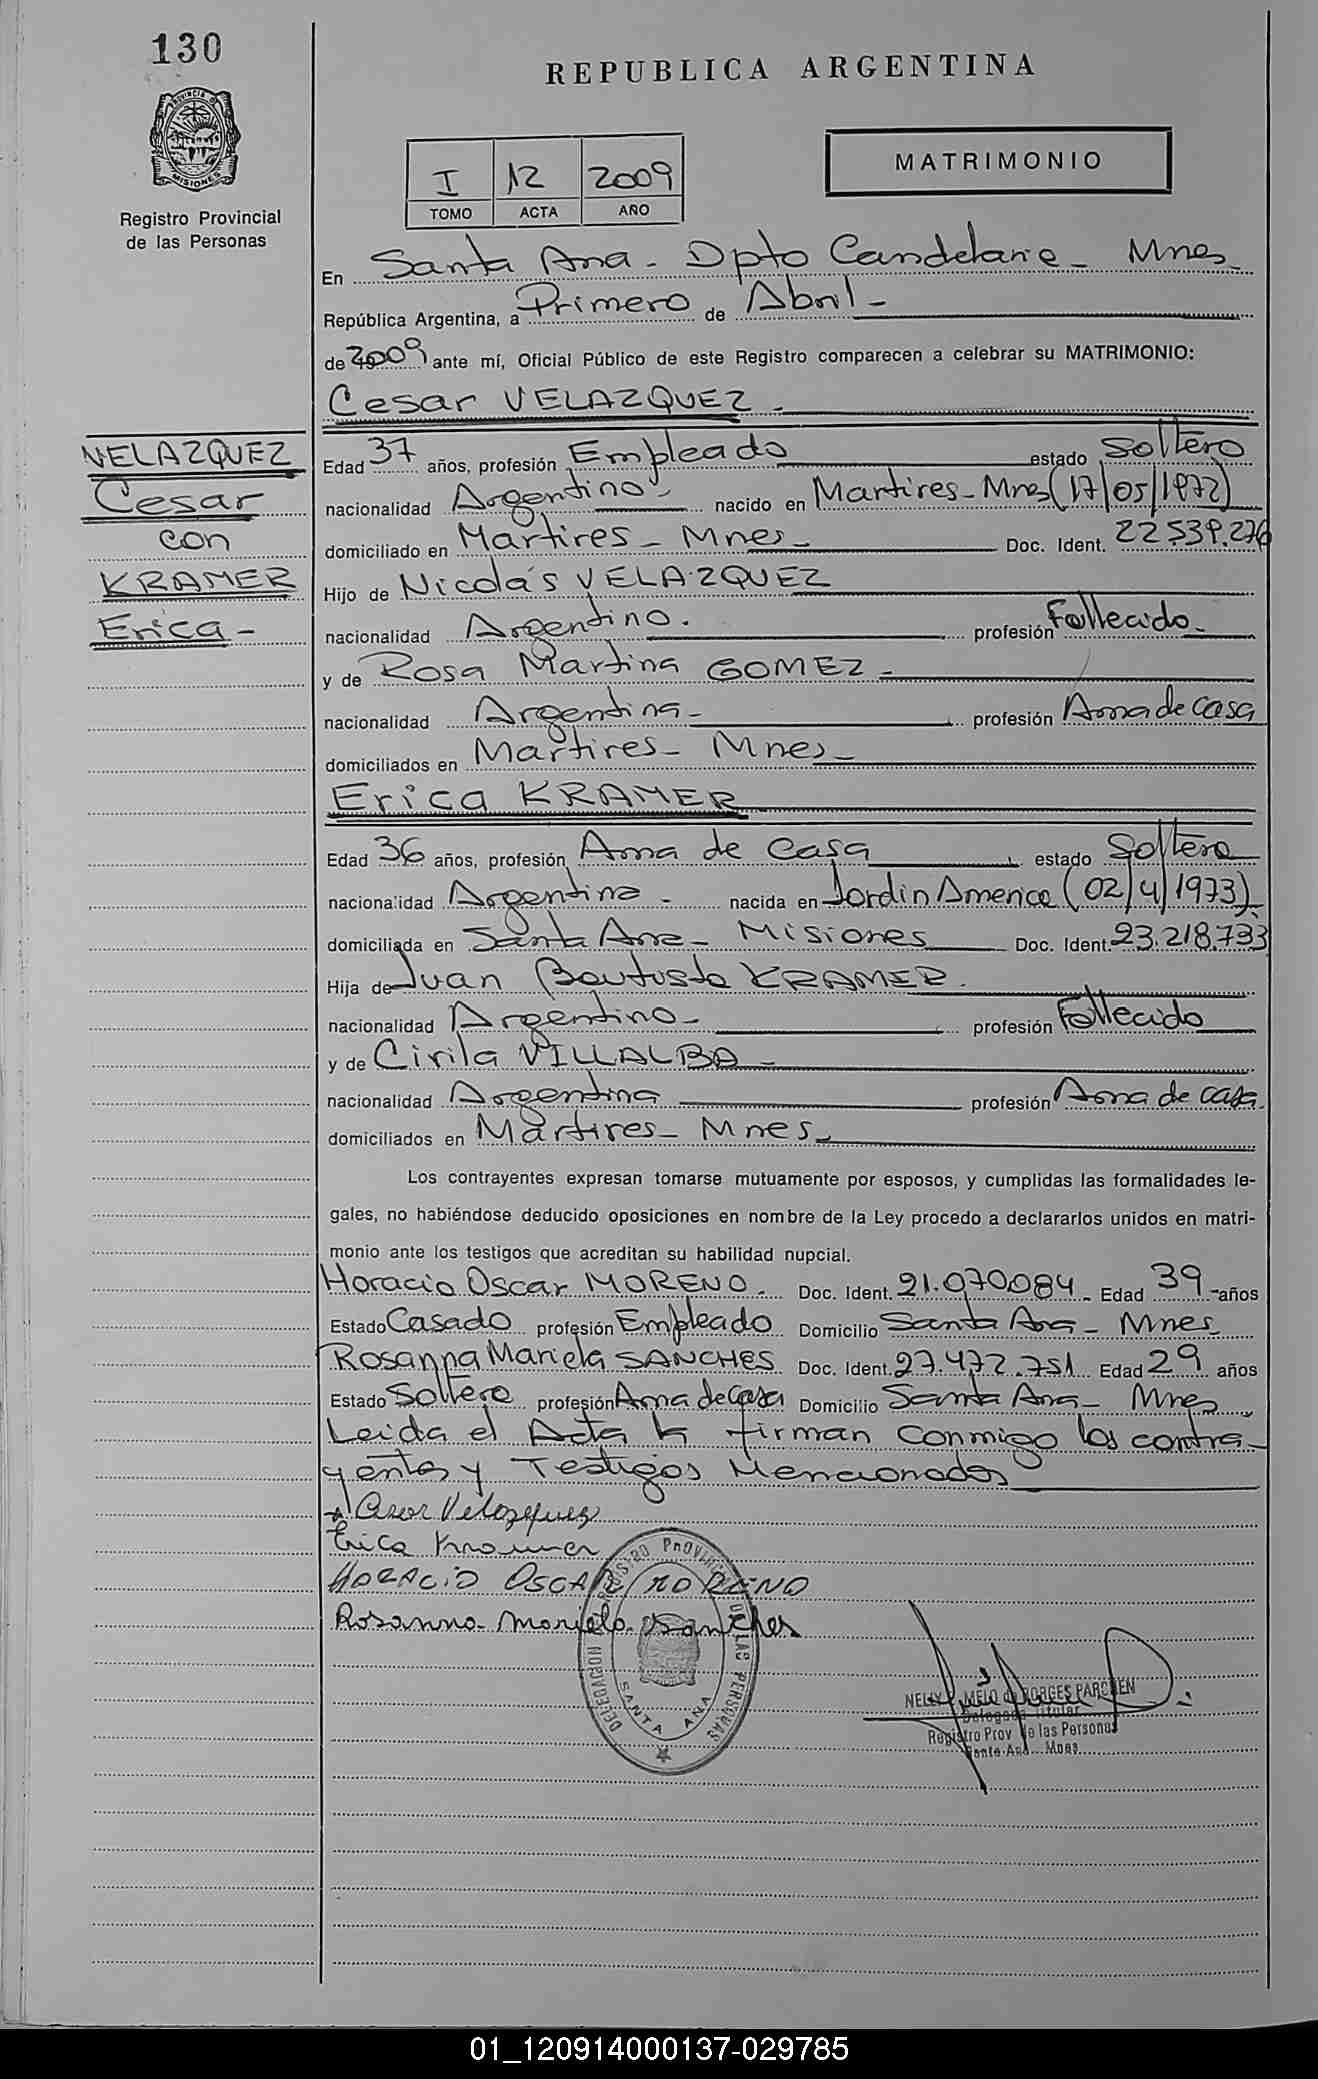 130
REPUBLICA ARGENTINA
PROVINCIA D
MISIONES
Registro Provincial
de las Personas
I 12 2009
TOMO ACTA AÑO
MATRIMONIO
En Santa Ana - Dpto Candelaria - Mnes -
República Argentina, a Primero de Abril -
de 2009 ante mí, Oficial Público de este Registro comparecen a celebrar su MATRIMONIO:
Cesar VELAZQUEZ -
VELAZQUEZ
Cesar
con
KRAMER
Erica -
Edad 37 años, profesión Empleado estado Soltero
nacionalidad Argentino - nacido en Martires - Mnes (17/05/1972)
domiciliado en Martires - Mnes - Doc. Ident. 22539.276
Hijo de Nicolás VELAZQUEZ
nacionalidad Argentino. profesión Fallecido -
y de Rosa Martina GOMEZ -
nacionalidad Argentina - profesión Ama de casa
domiciliados en Martires - Mnes -
Erica KRAMER
Edad 36 años, profesión Ama de casa estado Soltera
nacionalidad Argentina - nacida en Jardin America (02/4/1973)
domiciliada en Santa Ana - Misiones Doc. Ident. 23.218.733
Hija de Juan Bautista KRAMER.
nacionalidad Argentino - profesión Fallecido
y de Cirila VILLALBA -
nacionalidad Argentina profesión Ama de casa.
domiciliados en Martires - Mnes -
Los contrayentes expresan tomarse mutuamente por esposos, y cumplidas las formalidades le-
gales, no habiéndose deducido oposiciones en nombre de la Ley procedo a declararlos unidos en matri-
monio ante los testigos que acreditan su habilidad nupcial.
Horacio Oscar MORENO. Doc. Ident. 21.070.084 - Edad 39 - años
Estado Casado profesión Empleado Domicilio Santa Ana - Mnes
Rosanna Mariela SANCHES Doc. Ident. 27.472.751 Edad 29 años
Estado Soltera profesión Ama de casa Domicilio Santa Ana - Mnes
Leida el Acta la firman conmigo los contra-
yentes y Testigos Mencionados
Cesar Velazquez
Erica Kramer
HORACIO OSCAR MORENO
Rosanna Mariela Sanches
DELEGACION REGISTRO PROVINCIAL DE LAS PERSONAS
SANTA ANA
NELLY MELO de BORGES PARCHEN
Delegada Titular
Registro Prov de las Personas
Santa Ana Mnes
01_120914000137-029785